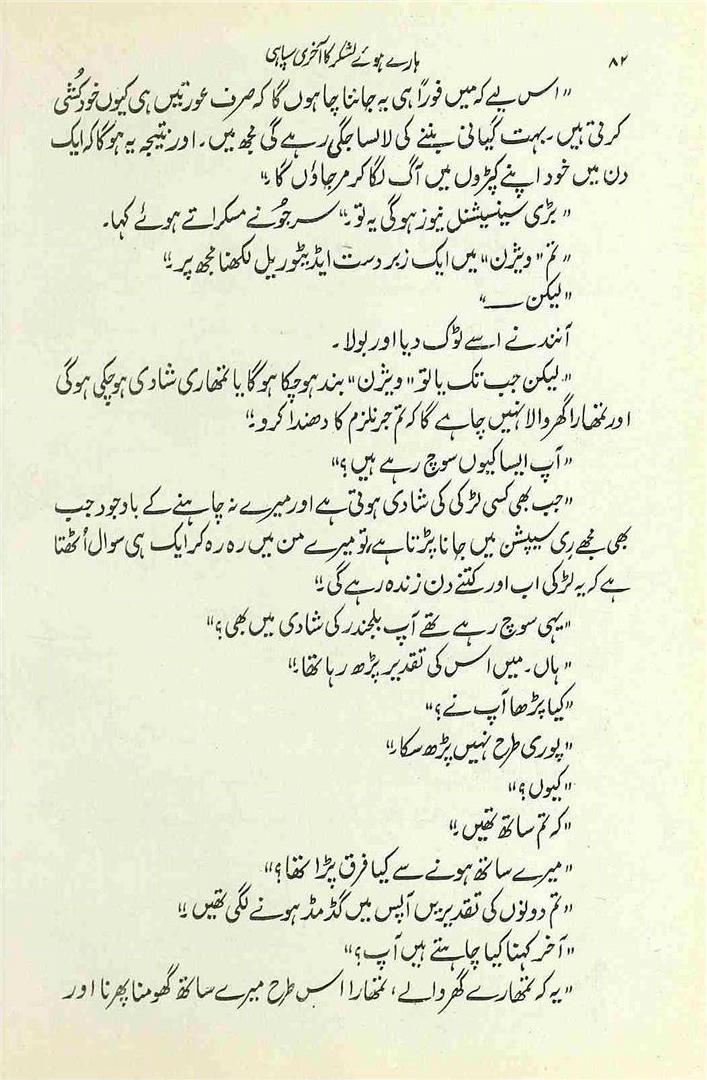 ۸۲ ہارے ہوئے لشکر کا آخری سپاہی
"اس لیے کہ میں فوراً ہی یہ جاننا چاہوں گا کہ صرف عورتیں ہی کیوں خودکُشی
کرتی ہیں۔ بہت گیانی بننے کی لالسا جگی رہے گی مجھ میں۔ اور نتیجہ یہ ہوگا کہ ایک
دن میں خود اپنے کپڑوں میں آگ لگا کر مر جاؤں گا۔"
"بڑی سینسیشنل نیوز ہوگی یہ تو۔" سرجُو نے مسکراتے ہوئے کہا۔
"تم "ویژن" میں ایک زبردست ایڈیٹوریل لکھنا مجھ پر۔"
"لیکن ــــ"
آنند نے اسے ٹوک دیا اور بولا۔
"لیکن جب تک یا تو "ویژن" بند ہو چکا ہوگا یا تمھاری شادی ہو چکی ہوگی
اور تمھارا گھر والا نہیں چاہے گا کہ تم جرنلزم کا دھندا کرو۔"
"آپ ایسا کیوں سوچ رہے ہیں؟"
"جب بھی کسی لڑکی کی شادی ہوتی ہے اور میرے نہ چاہنے کے باوجود جب
بھی مجھے رِی سیپشن میں جانا پڑتا ہے، تو میرے من میں رہ رہ کر ایک ہی سوال اُٹھتا
ہے کہ یہ لڑکی اب اور کتنے دن زندہ رہے گی۔"
"یہی سوچ رہے تھے آپ بلجندر کی شادی میں بھی؟"
"ہاں۔ میں اس کی تقدیر پڑھ رہا تھا۔"
"کیا پڑھا آپ نے؟"
"پوری طرح نہیں پڑھ سکا۔"
"کیوں؟"
"کہ تم ساتھ تھیں۔"
"میرے ساتھ ہونے سے کیا فرق پڑا تھا؟"
"تم دونوں کی تقدیریں آپس میں گڈمڈ ہونے لگی تھیں۔"
"آخر کہنا کیا چاہتے ہیں آپ؟"
"یہ کہ تمھارے گھر والے، تمھارا اس طرح میرے ساتھ گھومنا پھرنا اور